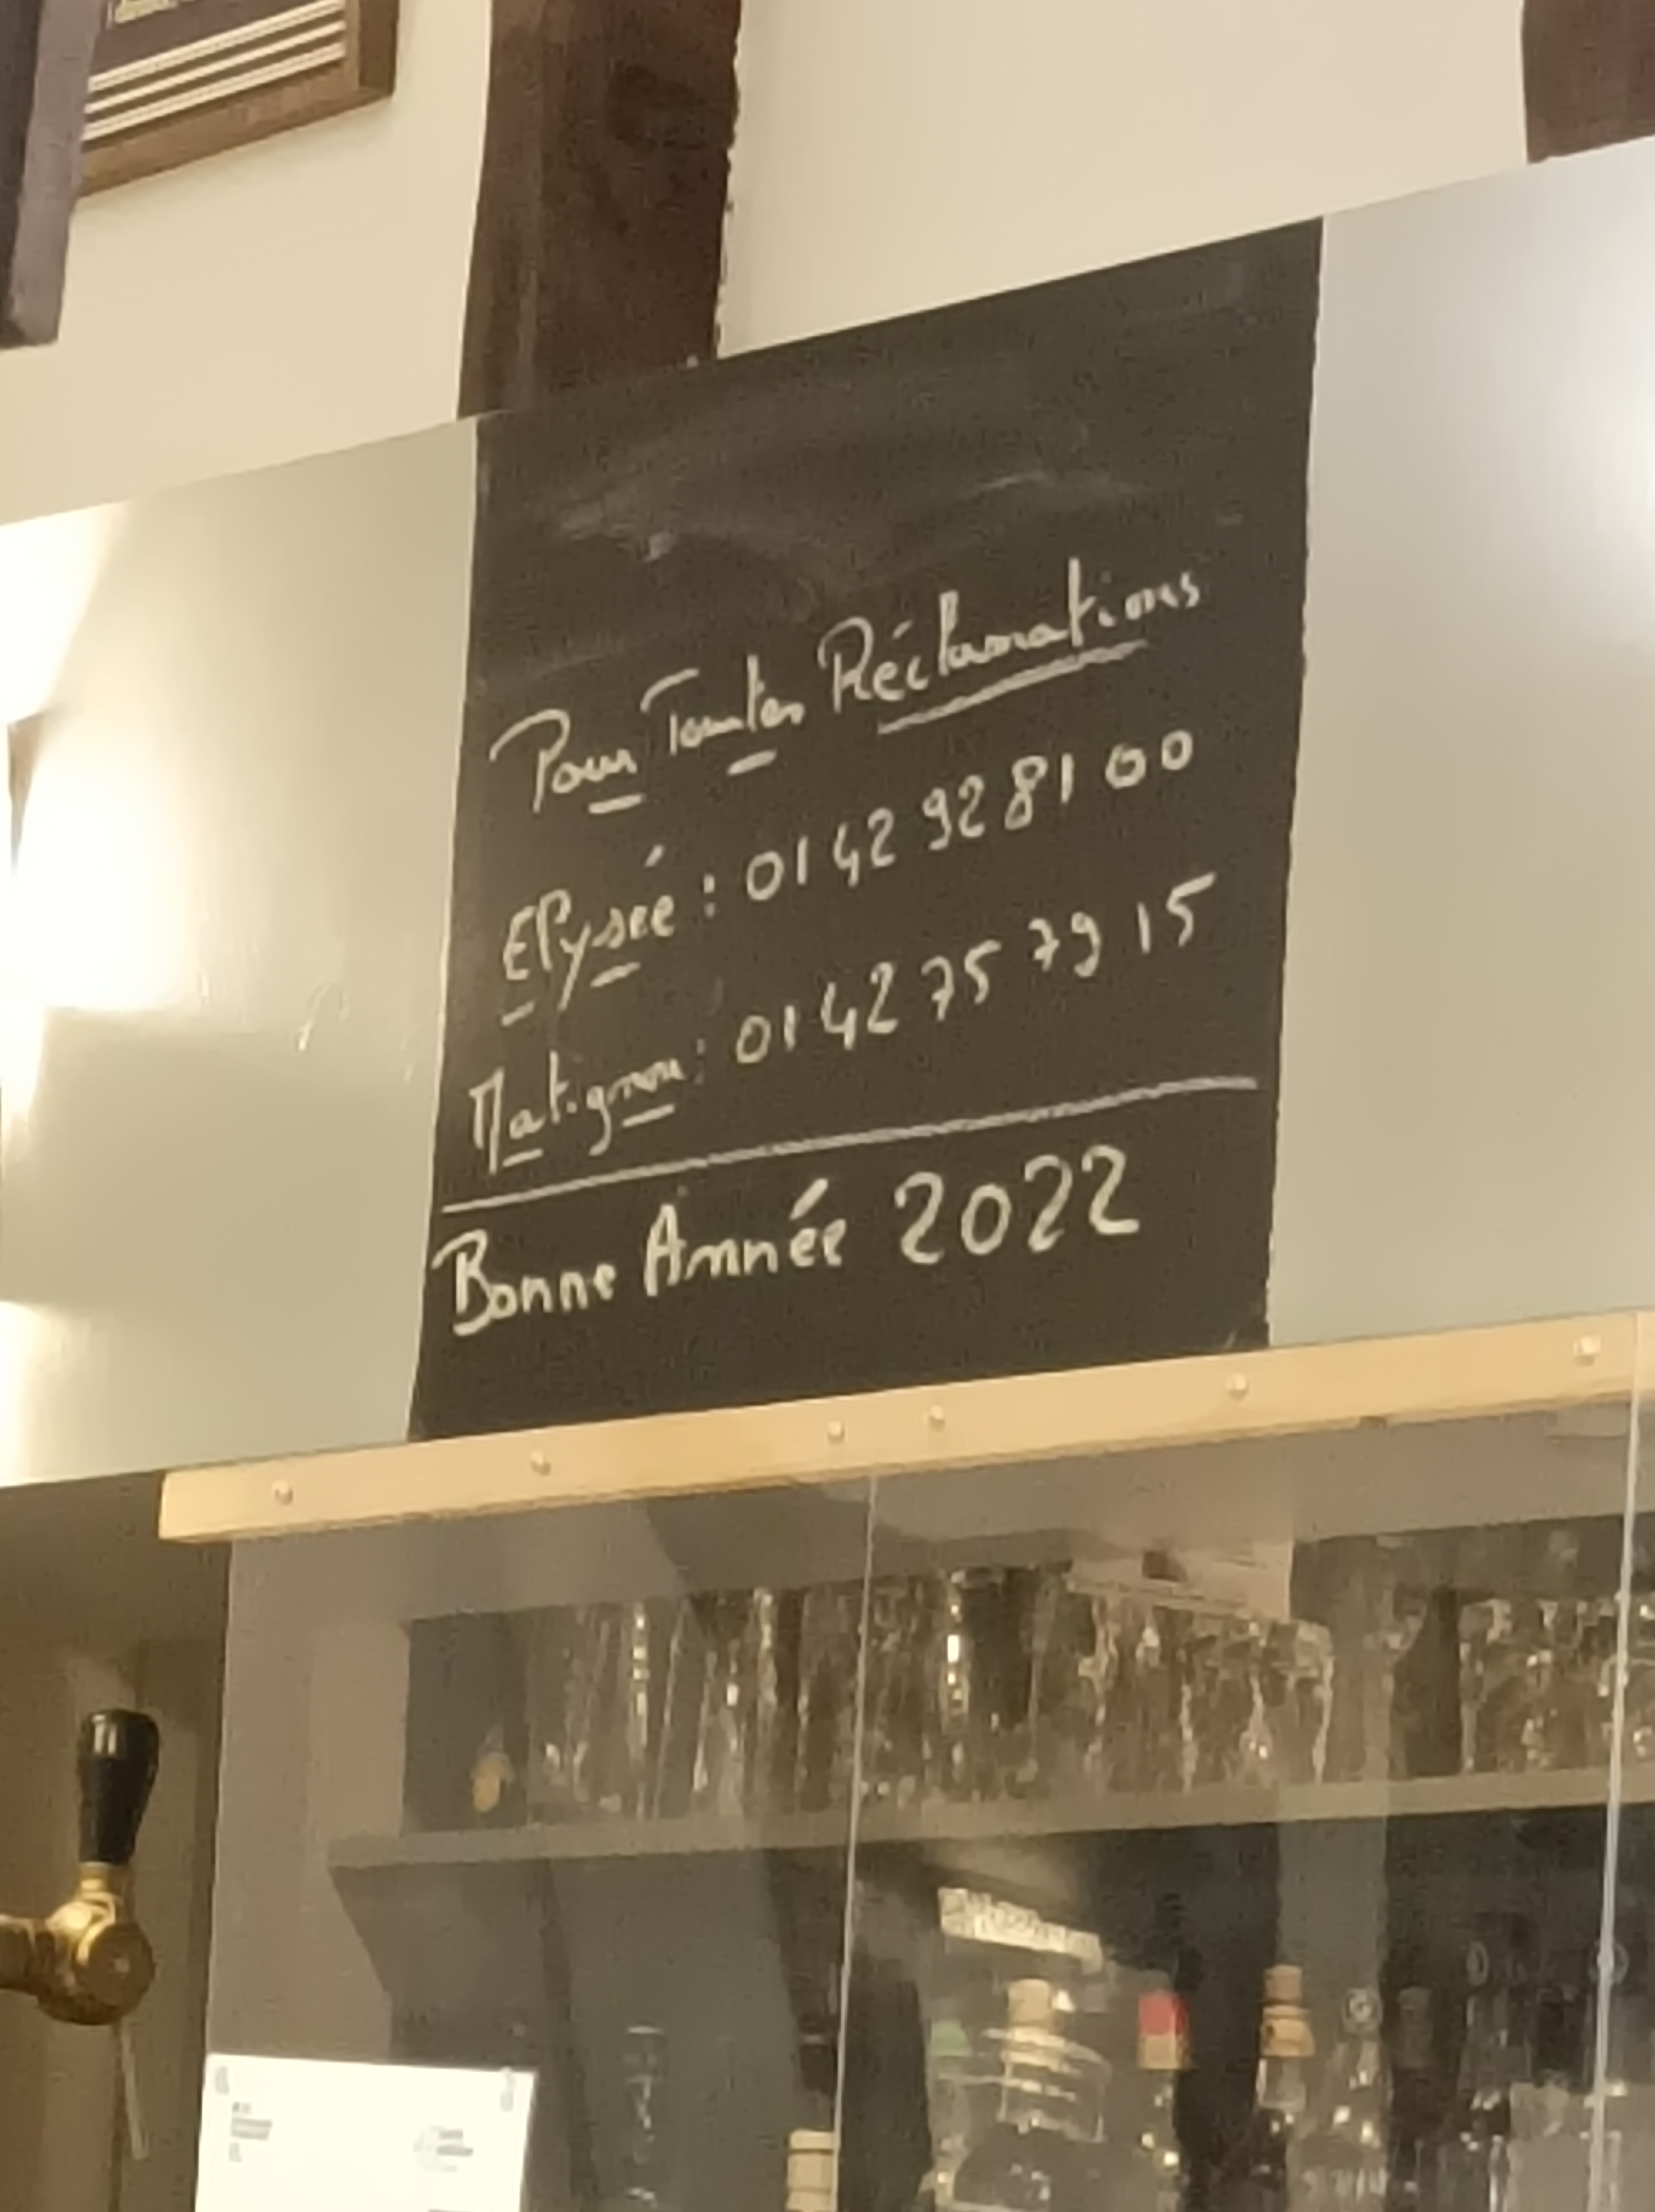 Pour Toutes Réclamations
Elysée : 01 42 92 81 00
Matignon : 01 42 75 79 15
Bonne Année 2022